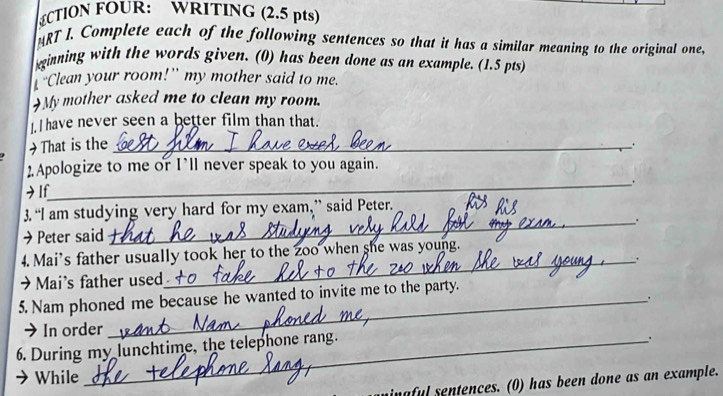 SECTION FOUR: WRITING (2.5 pts)
PART I. Complete each of the following sentences so that it has a similar meaning to the original one,
beginning with the words given. (0) has been done as an example. (1.5 pts)
"Clean your room!" my mother said to me.
→ My mother asked me to clean my room.
1. I have never seen a better film than that.
→ That is the best film I have ever been.
2. Apologize to me or I'll never speak to you again.
→ If.
3. "I am studying very hard for my exam," said Peter.
his his
→ Peter said that he was studying very hard for exam.
4. Mai's father usually took her to the zoo when she was young.
→ Mai's father used to take her to the zoo when she was young.
5. Nam phoned me because he wanted to invite me to the party.
→ In order want Nam phoned me,.
6. During my lunchtime, the telephone rang.
→ While the telephone rang,.
sentences. (0) has been done as an example.